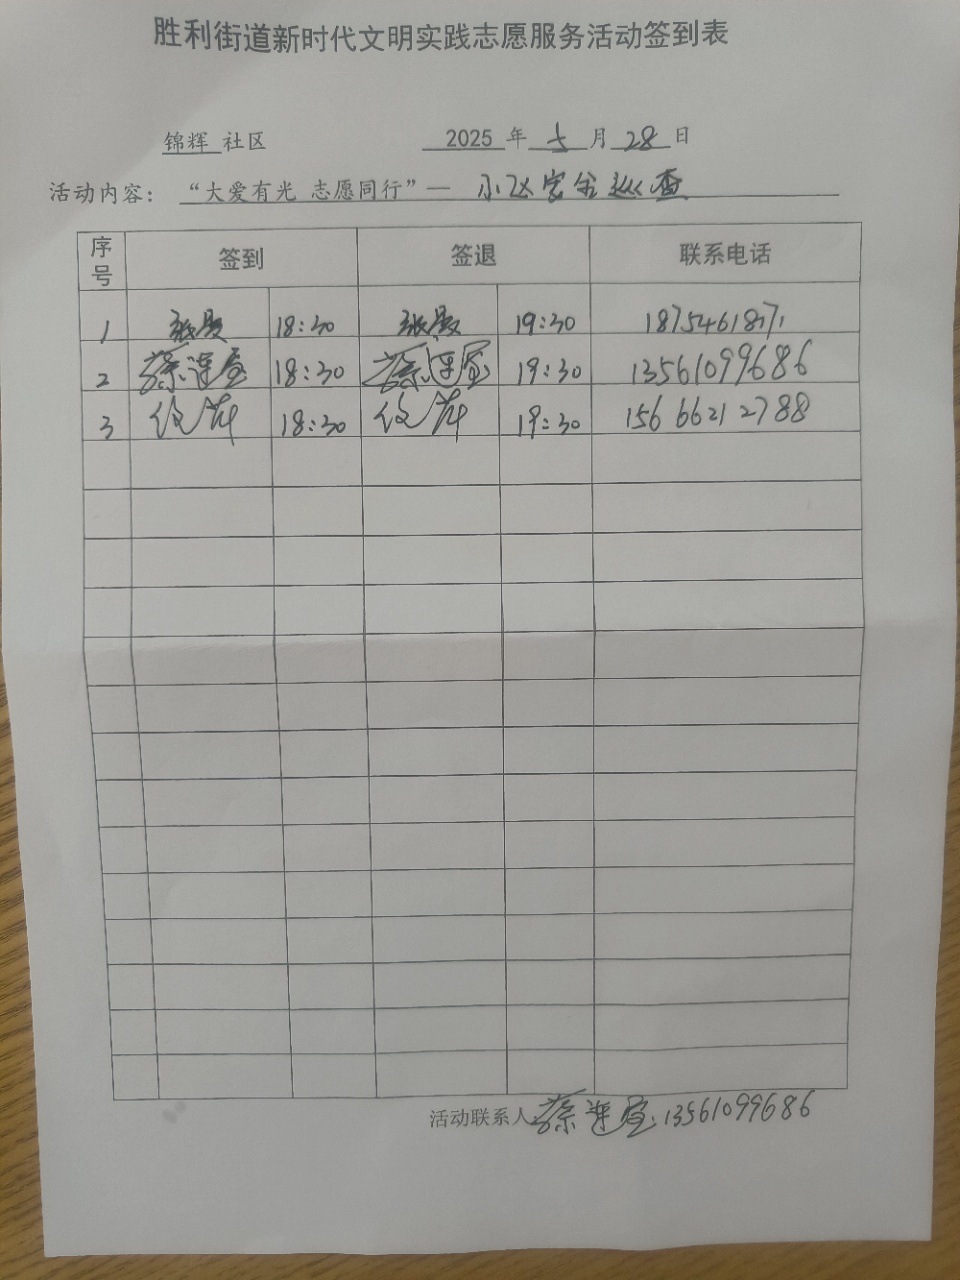 胜利街道新时代文明实践志愿服务活动签到表
锦辉 社区 2025 年 5 月 28 日
活动内容： “大爱有光 志愿同行”— 小区安全巡查
序号 签到 签退 联系电话
1 18:30 19:30 18754618171
2 蔡莲 18:30 蔡莲 19:30 13561099686
3 18:30 19:30 15666212788
活动联系人 蔡莲 13561099686